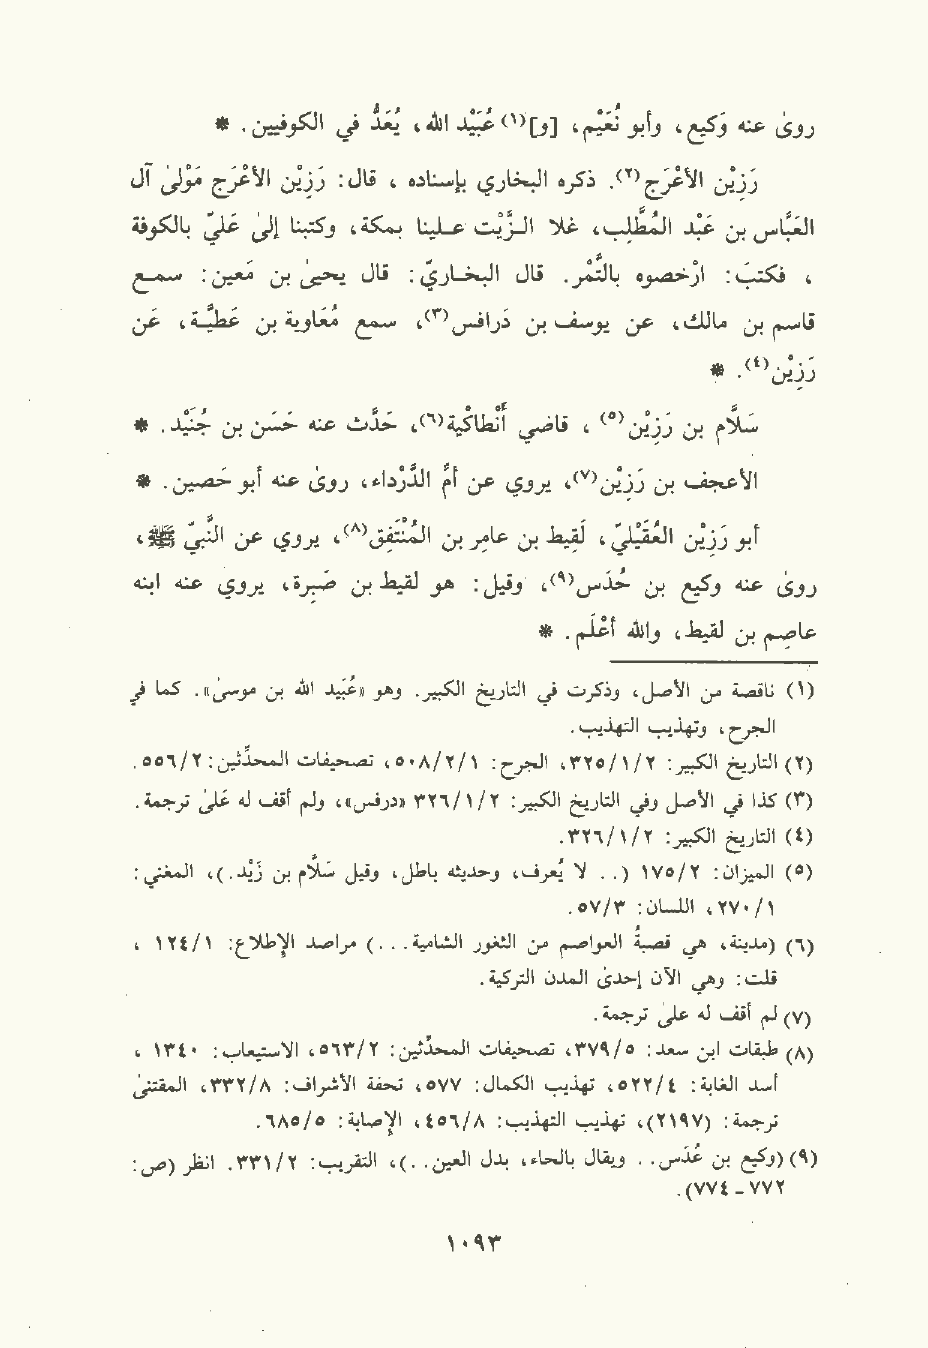 روىٰ عنه وَكيع، وأبو نُعَيْم، [و](١) عُبَيْد الله، يُعَدُّ في الكوفيين. *
رَزِيْن الأعْرَج(٢). ذكره البخاري بإسناده ، قال: رَزِيْن الأعْرَج مَوْلىٰ آل
العَبَّاس بن عَبْد المُطَّلِب، غلا الـزَّيْت عليـنا بمـكة، وكتبنا إلىٰ عَليّ بالكوفة
، فكتبَ: ارْخصوه بالتَّمْر. قال البخـاريّ: قال يحيىٰ بن مَعين: سمـع
قاسم بن مالك، عن يوسف بن دَرافس(٣)، سمع مُعَاوية بن عَطِيَّـة، عَن
رَزِيْن(٤). *
سَلاَّم بن رَزِيْن(٥) ، قاضي أَنْطاكْية(٦)، حَدَّث عنه حَسَن بن جُنَيْد. *
الأعجف بن رَزِيْن(٧)، يروي عن أمِّ الدَّرْداء، روىٰ عنه أبو حَصين. *
أبو رَزِيْن العُقَيْليّ، لَقِيط بن عامِر بن المُنْتَفِق(٨)، يروي عن النَّبيّ ﷺ،
روىٰ عنه وكيع بن حُدَس(٩)، وقيل: هو لقيط بن صَبِرة، يروي عنه ابنه
عاصِم بن لقيط، والله أعْلَم. *
(١) ناقصة من الأصل، وذكرت في التاريخ الكبير. وهو «عُبَيد الله بن موسىٰ». كما في
الجرح، وتهذيب التهذيب.
(٢) التاريخ الكبير: ٣٢٥/١/٢، الجرح: ٥٠٨/٢/١، تصحيفات المحدِّثين: ٥٥٦/٢.
(٣) كذا في الأصل وفي التاريخ الكبير: ٣٢٦/١/٢ «درفس»، ولم أقف له علىٰ ترجمة.
(٤) التاريخ الكبير: ٣٢٦/١/٢.
(٥) الميزان: ١٧٥/٢ (. . لا يُعرف، وحديثه باطل، وقيل سَلاَّم بن زَيْد.)، المغني:
٢٧٠/١، اللسان: ٥٧/٣.
(٦) (مدينة، هي قصبةُ العواصم من الثغور الشامية. . . .) مراصد الإطلاع: ١٢٤/١ ،
قلت: وهي الآن إحدىٰ المدن التركية.
(٧) لم أقف له علىٰ ترجمة.
(٨) طبقات ابن سعد: ٣٧٩/٥، تصحيفات المحدِّثين: ٥٦٣/٢، الاستيعاب: ١٣٤٠ ،
أسد الغابة: ٥٢٢/٤، تهذيب الكمال: ٥٧٧، تحفة الأشراف: ٣٣٢/٨، المقتنىٰ
ترجمة: (٢١٩٧)، تهذيب التهذيب: ٤٥٦/٨، الإصابة: ٦٨٥/٥.
(٩) (وكيع بن عُدَس. . ويقال بالحاء، بدل العين. .)، التقريب: ٣٣١/٢. انظر (ص:
٧٧٢ - ٧٧٤).
١٠٩٣